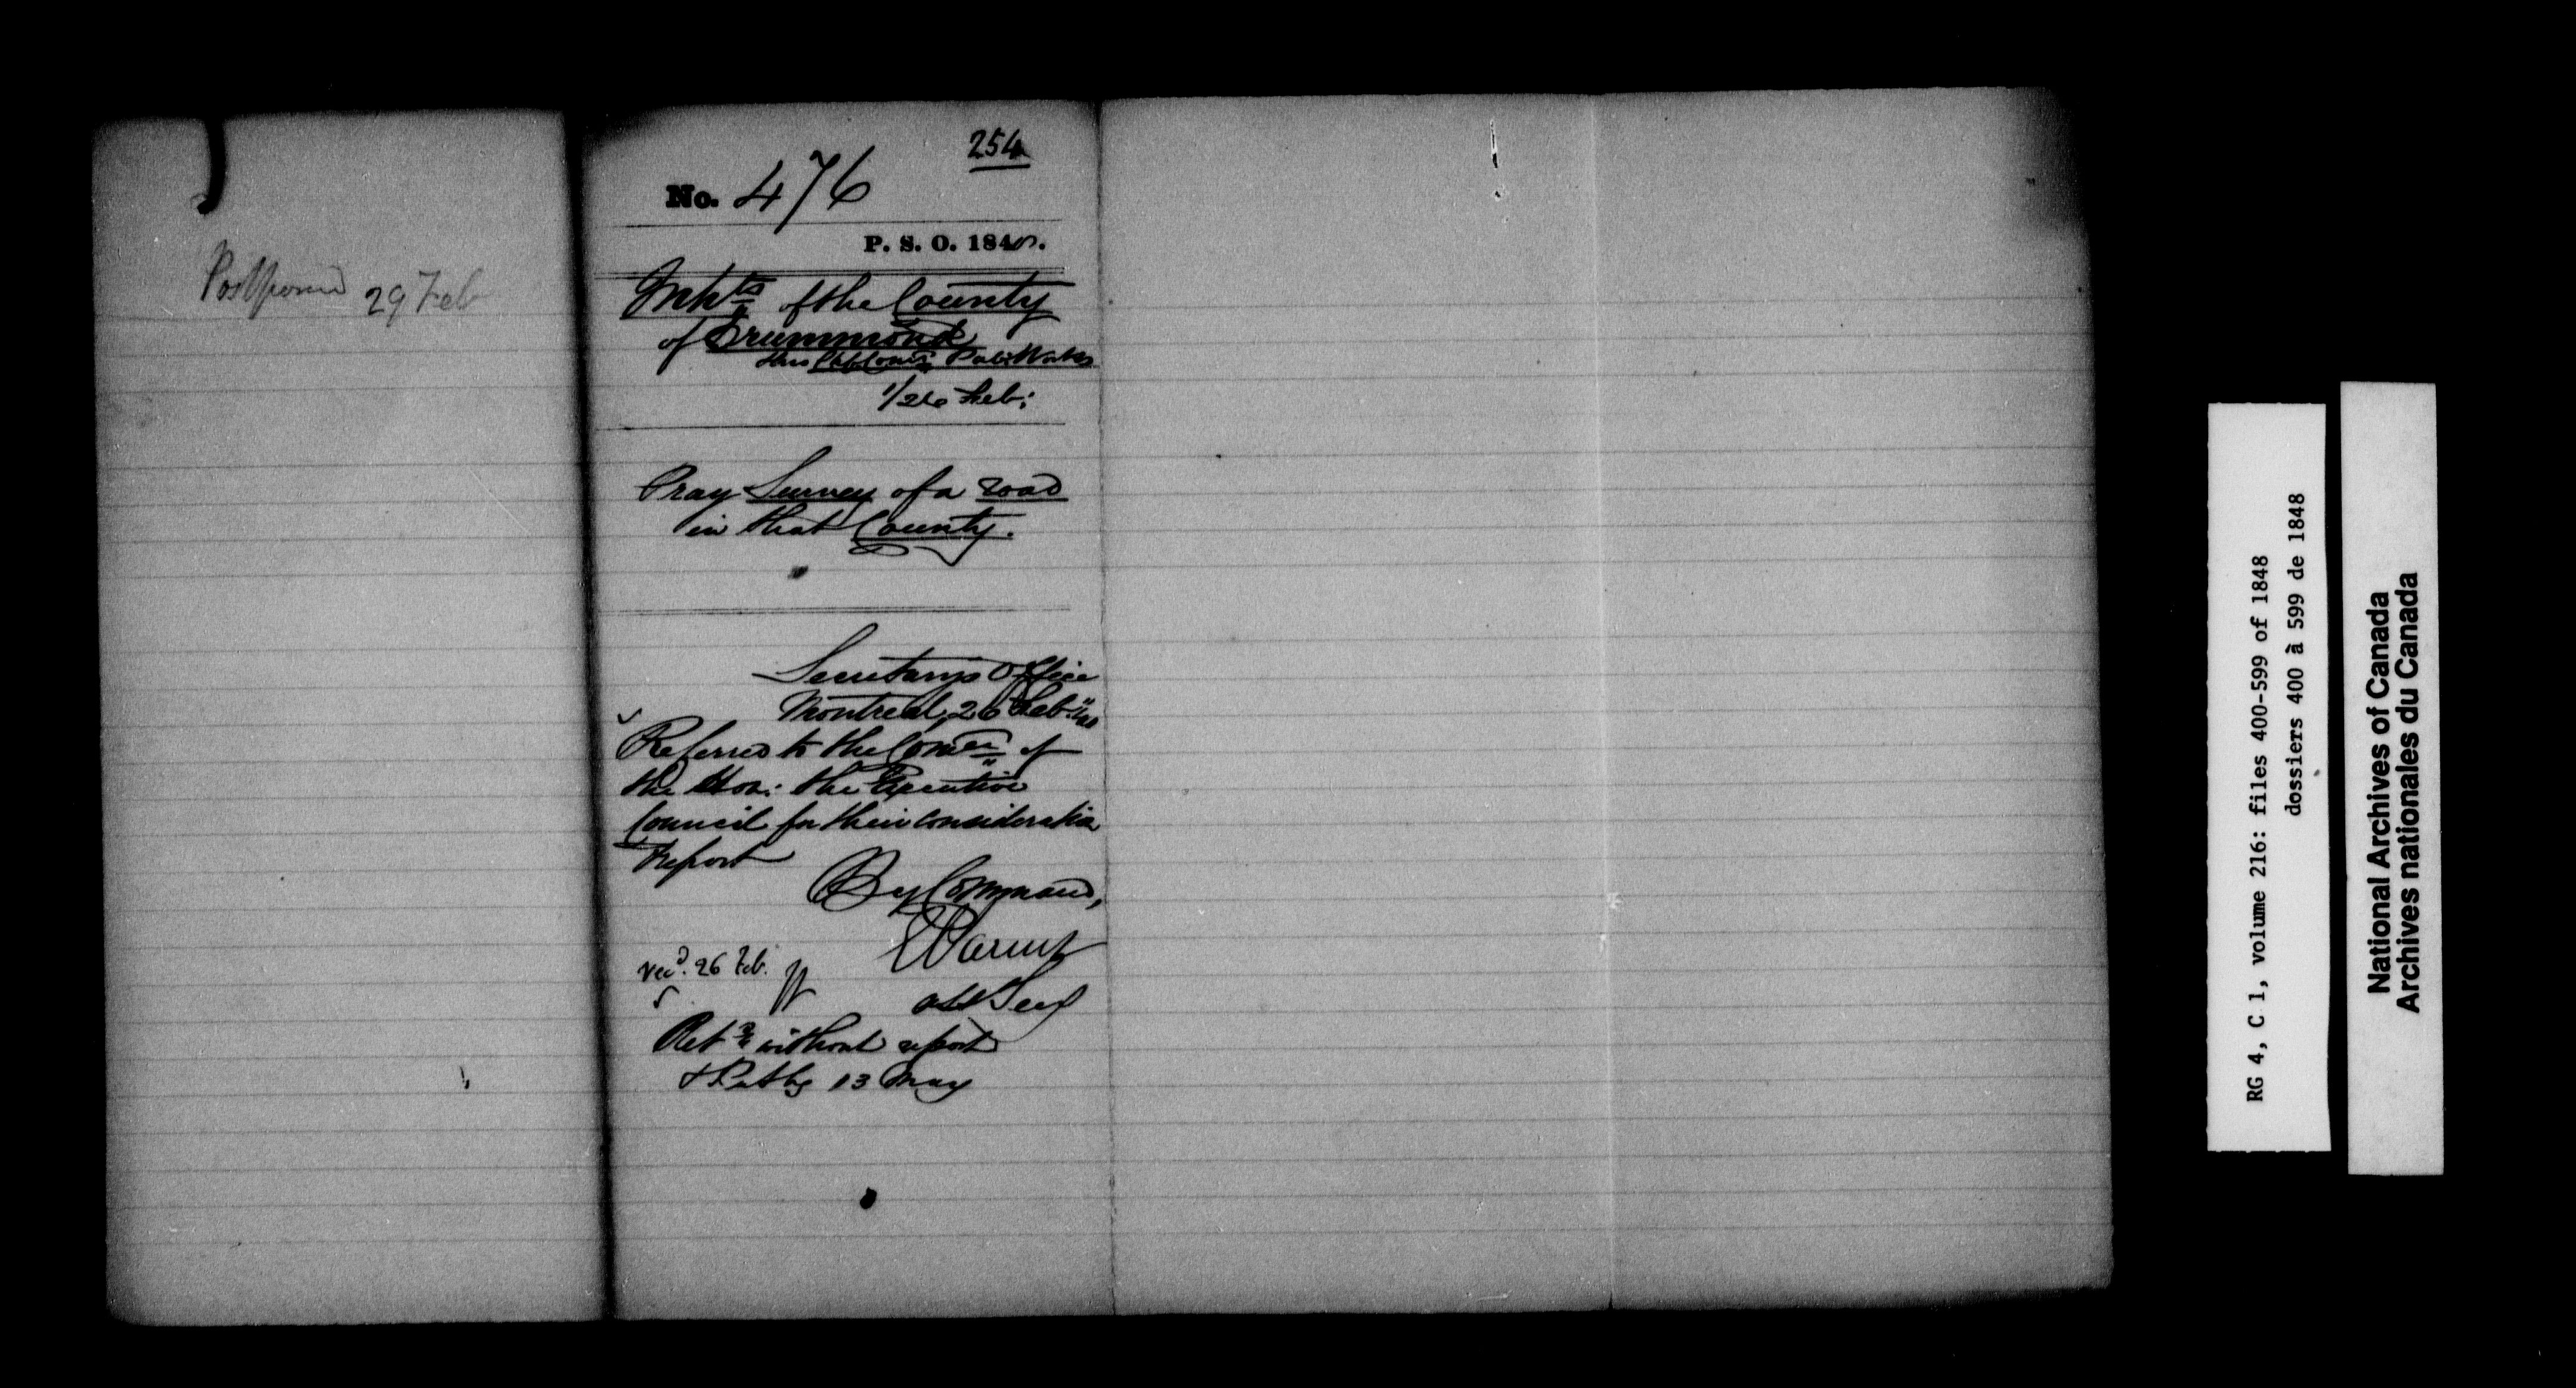 Postponed 29 Feb
254
No. 476
P. S. O. 1848.
Inhts of the County
of Drummond
thro Comrs Pub: Works
1/26 Feb:
Pray Survey of a road
in that County.
Secretary's Office
Montreal, 26 Feb: 48
Referred to the Comee of
the Hon: the Executive
Council for their consideration
& report
By Command,
E Parent
Asst Secy
recd. 26 Feb.
Retd without report
13 May
RG 4, C 1, volume 216: files 400-599 of 1848
dossiers 400 à 599 de 1848
National Archives of Canada
Archives nationales du Canada